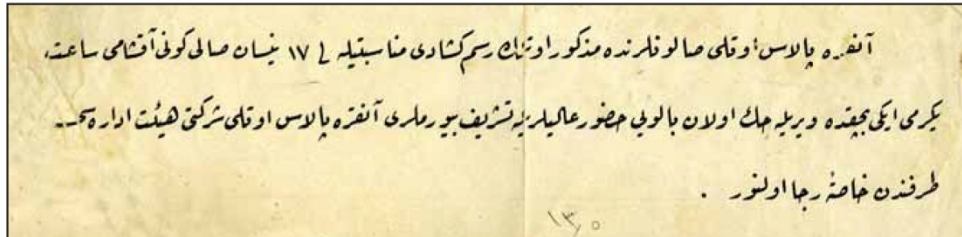 آنقره پالاس اوتلى صالونلرنده مذكور اوتلك رسم كشادى مناسبتيله فى ١٧ نيسان صالى كونى آقشامى ساعت
يكرمى ايكى بچقده ويريله جك اولان بالويى حضور عاليلريله تشريف بيورملرى آنقره پالاس اوتلى شركتى هيئت اداره سى
طرفندن خاصةً رجا اولنور .